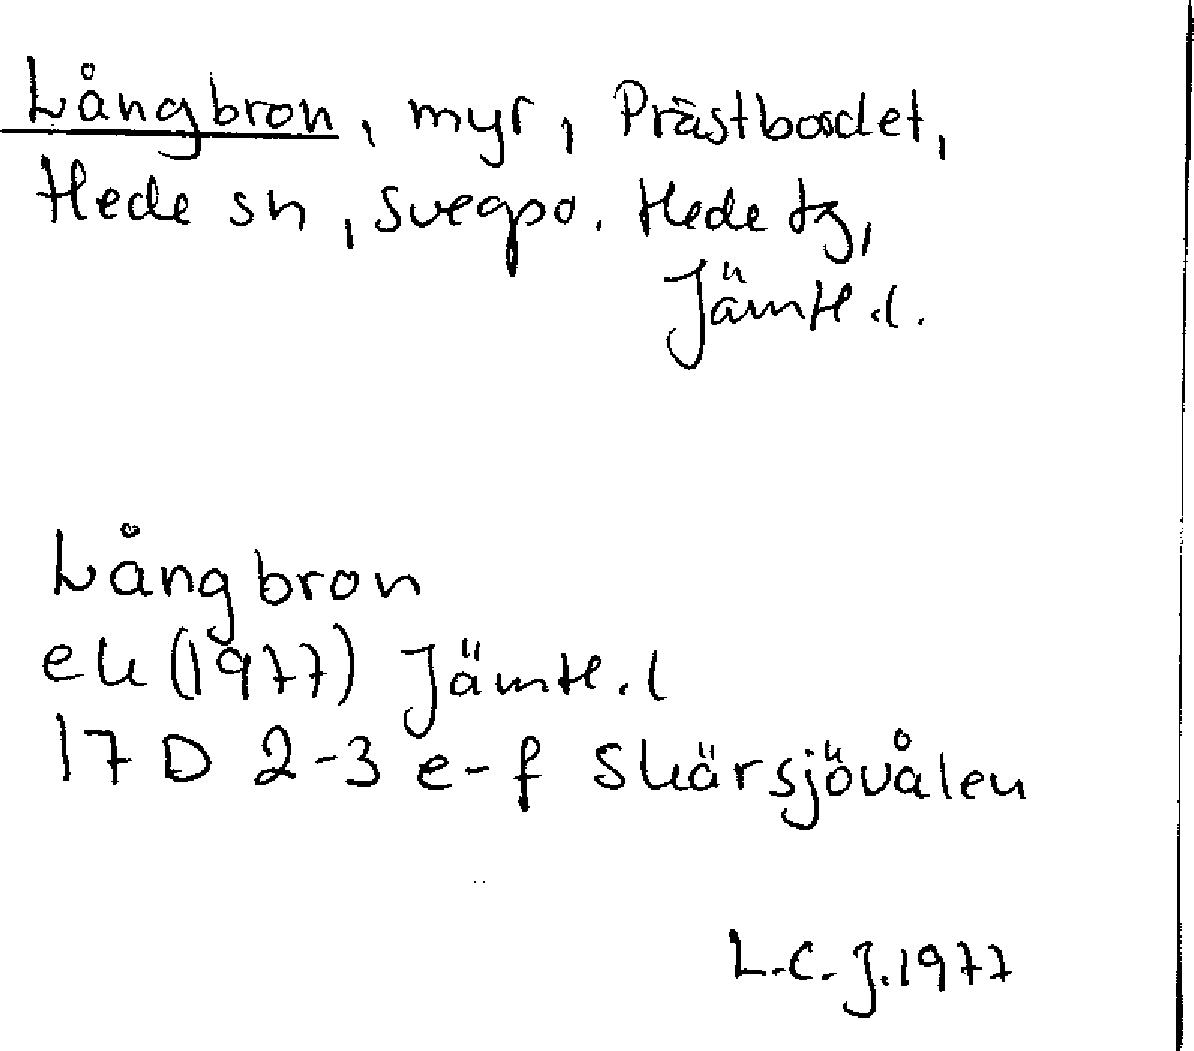 Långbron, myr, Prästbodet,
Hede sn, Svegpo. Hede tg,
Jämtl.l.
Långbron
ek (1977) Jämtl.l
17 D 2-3 e-f Skärsjövålen
L.C.J. 1977